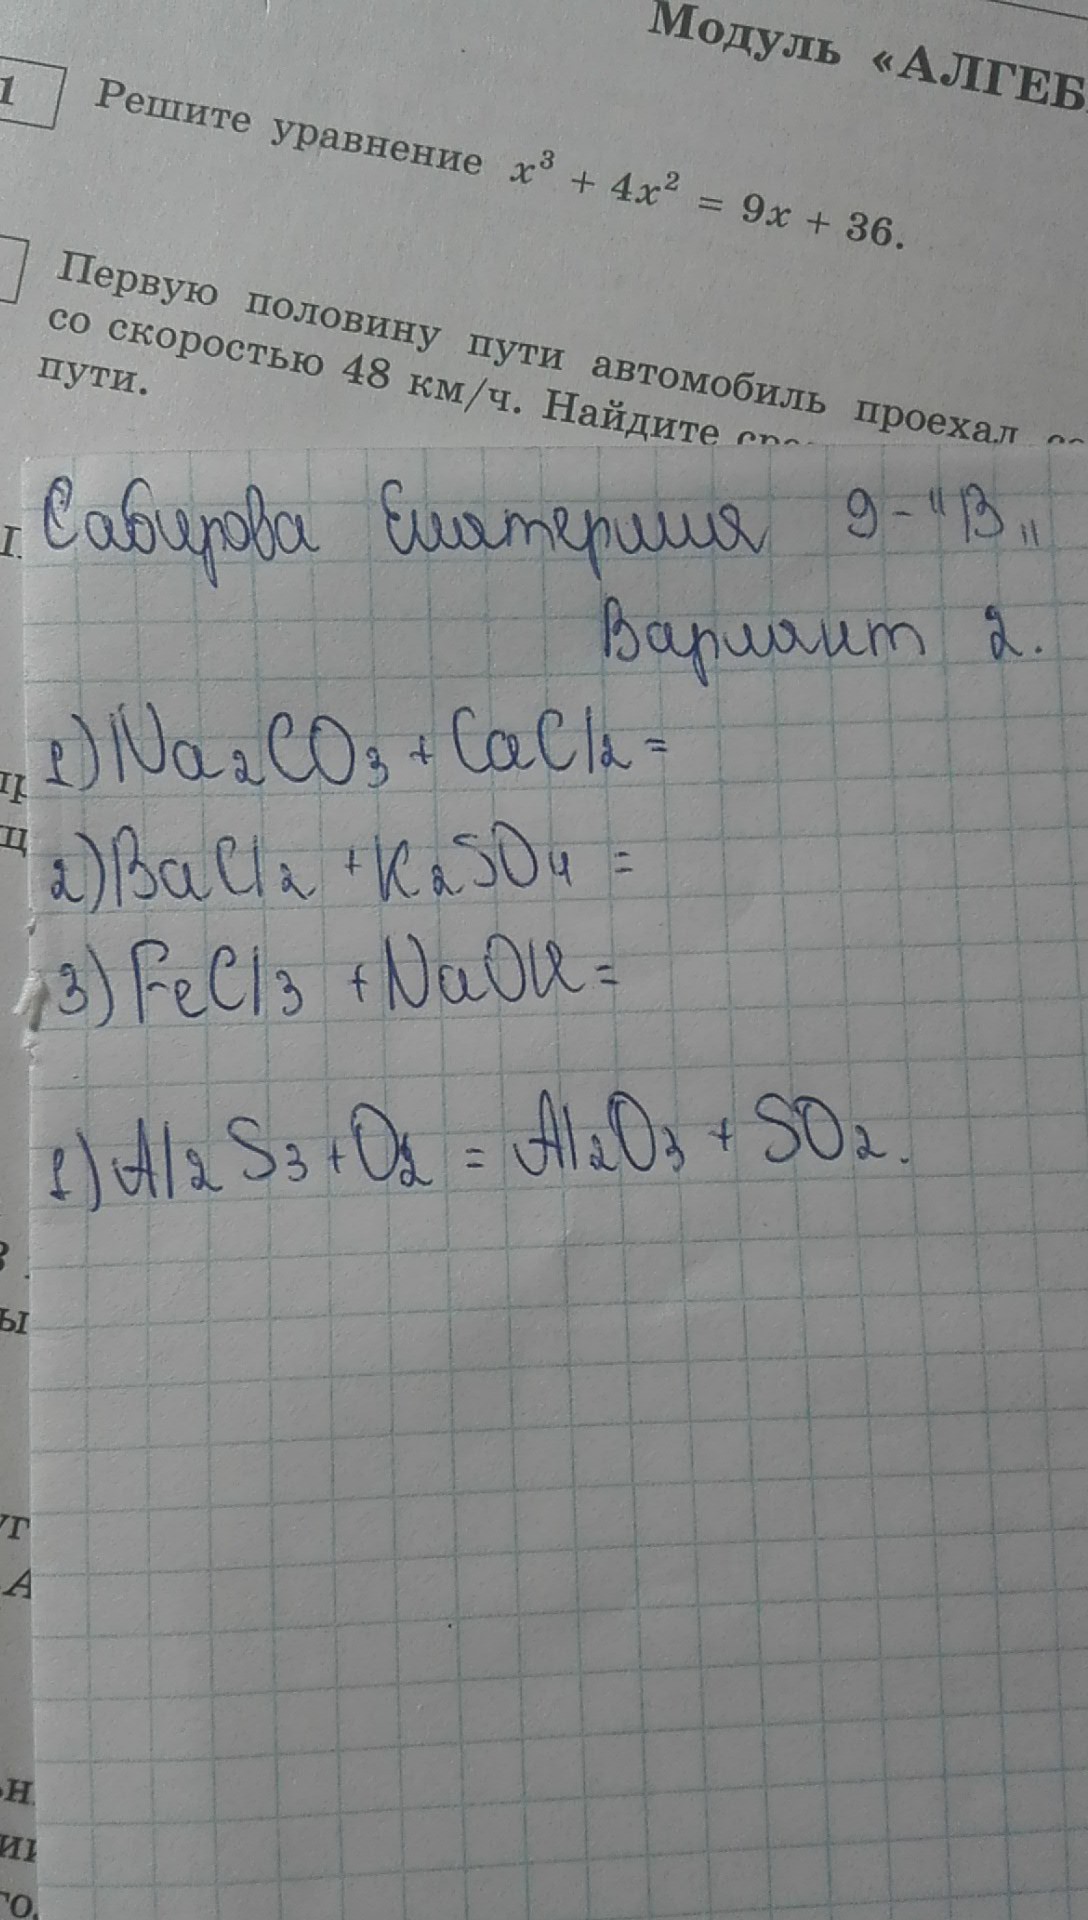 Модуль «АЛГЕБ
1 Решите уравнение x³ + 4x² = 9x + 36.
Первую половину пути автомобиль проехал со
со скоростью 48 км/ч. Найдите сре
пути.
Сабирова Екатерина 9-"В„
Вариант 2.
1) Na₂CO₃ + CaCl₂ =
2) BaCl₂ + K₂SO₄ =
3) FeCl₃ + NaOH =
1) Al₂S₃ + O₂ = Al₂O₃ + SO₂.